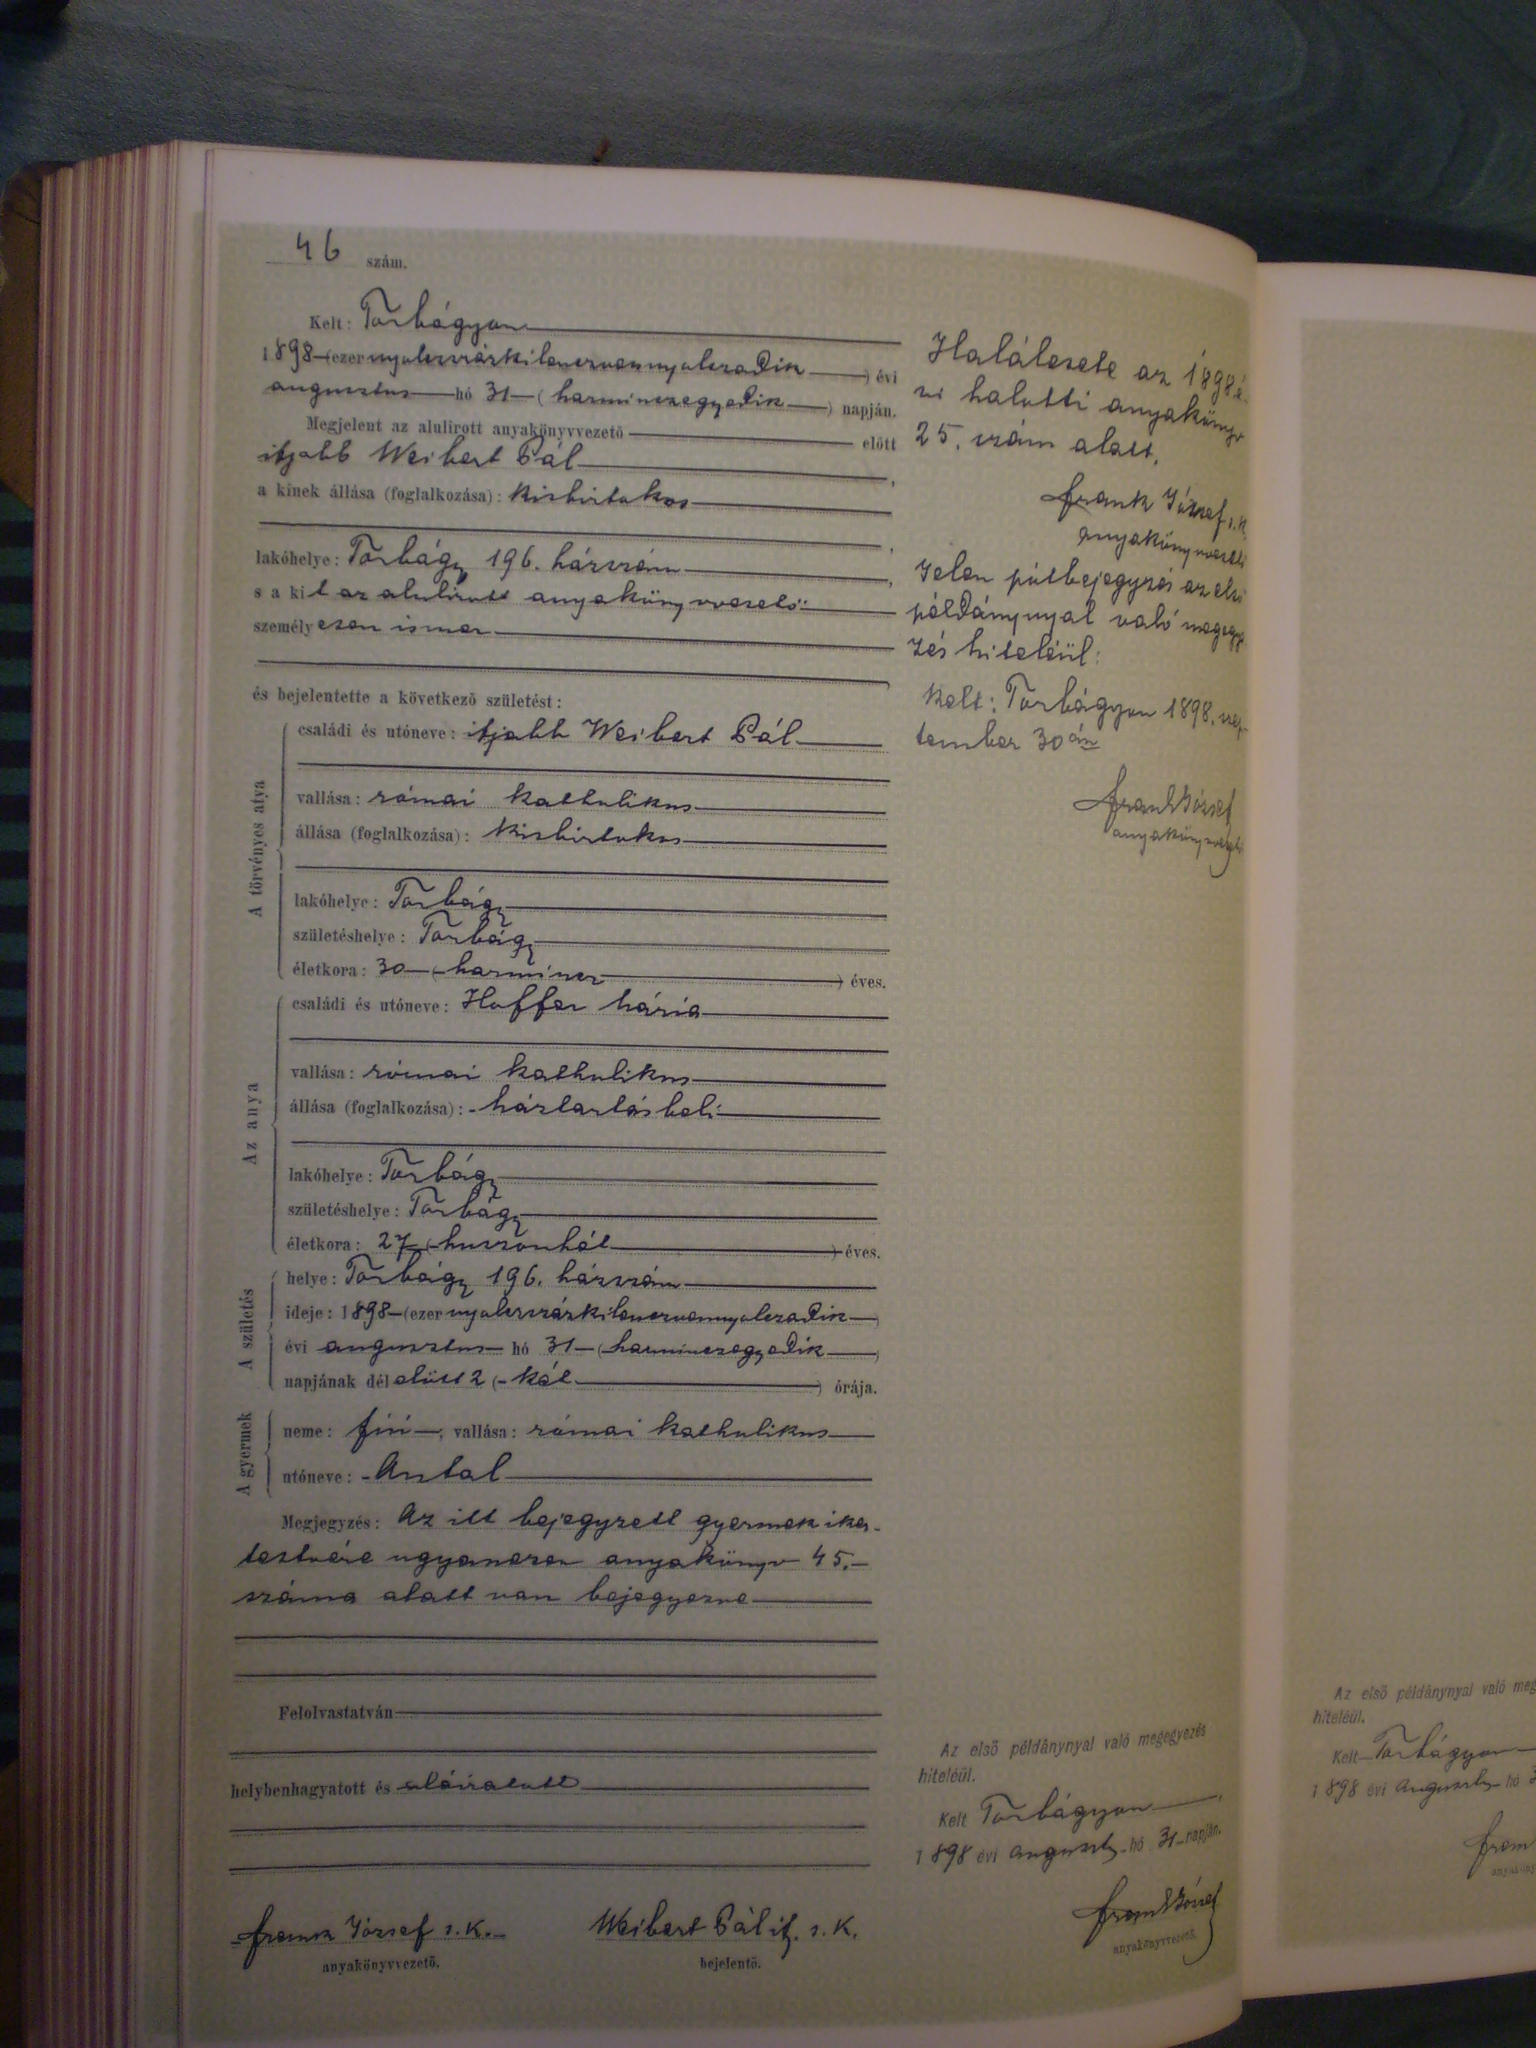 46 szám.
Kelt: Torbágyon
1898 (ezernyolczszázkilenczvennyolczadik) évi
augusztus hó 31 (harminczegyedik) napján.
Megjelent az alulirott anyakönyvvezető előtt
ifjabb Weibert Pál,
a kinek állása (foglalkozása): kisbirtokos
,
lakóhelye: Torbágy 196. házszám,
s a kit az alulirott anyakönyvvezető
személyesen ismer
,
és bejelentette a következő születést:
A törvényes atya
családi és utóneve: ifjabb Weibert Pál
vallása: római katholikus
állása (foglalkozása): kisbirtokos
lakóhelye: Torbágy
születéshelye: Torbágy
életkora: 30 (harmincz) éves.
Az anya
családi és utóneve: Hoffer Mária
vallása: római katholikus
állása (foglalkozása): háztartásbeli
lakóhelye: Torbágy
születéshelye: Torbágy
életkora: 27 (huszonhét) éves.
A születés
helye: Torbágy 196. házszám
ideje: 1898 (ezernyolczszázkilenczvennyolczadik)
évi augusztus hó 31 (harminczegyedik)
napjának délelőtt 2 (két) órája.
A gyermek
neme: fiú; vallása: római katholikus
utóneve: Antal
Megjegyzés: Az itt bejegyzett gyermek iker-
testvére ugyanezen anyakönyv 45.
száma alatt van bejegyezve
Felolvastatván
helybenhagyatott és aláiratott
Frank József s. k.
anyakönyvvezető.
Weibert Pál if. s. k.
bejelentő.
Halálesete az 1898 é-
vi halotti anyakönyv
25. szám alatt.
Frank József s. k.
anyakönyvvezető
Jelen pótbejegyzés az első
példánynyal való megegye
zés hiteléül:
Kelt: Torbágyon 1898. szep-
tember 30án
Frank József
anyakönyvvezető
Az első példánynyal való megegyezés
hiteléül.
Kelt Torbágyon,
1898 évi auguszt. hó 31 napján.
Frank József
anyakönyvvezető.
Az első példánynyal való meg
hiteléül.
Kelt Torbágyon
1898 évi auguszt. hó 3